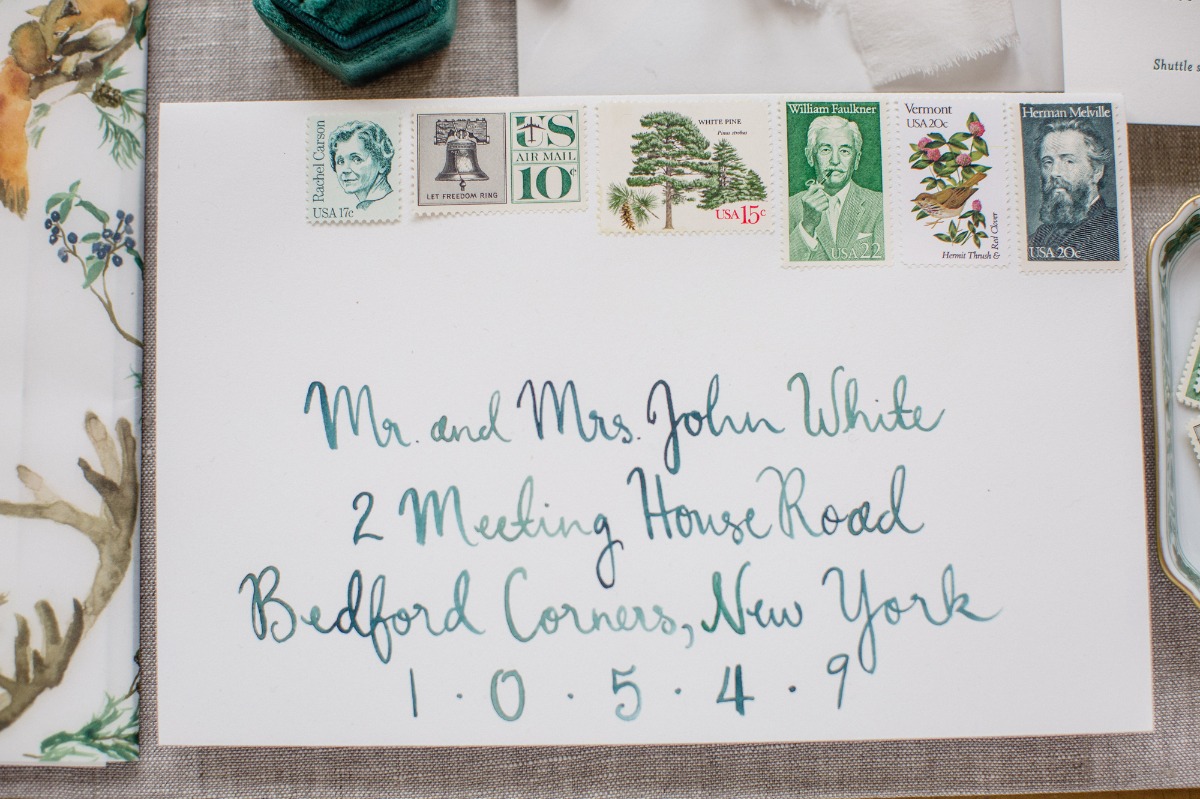 Rachel Carson
USA 17c
LET FREEDOM RING
US
AIR MAIL
10c
WHITE PINE
Pinus strobus
USA 15c
William Faulkner
USA 22
Vermont
USA 20c
Hermit Thrush &
Red Clover
Herman Melville
USA 20c
Shuttle
Mr. and Mrs. John White
2 Meeting House Road
Bedford Corners, New York
1 · 0 · 5 · 4 · 9